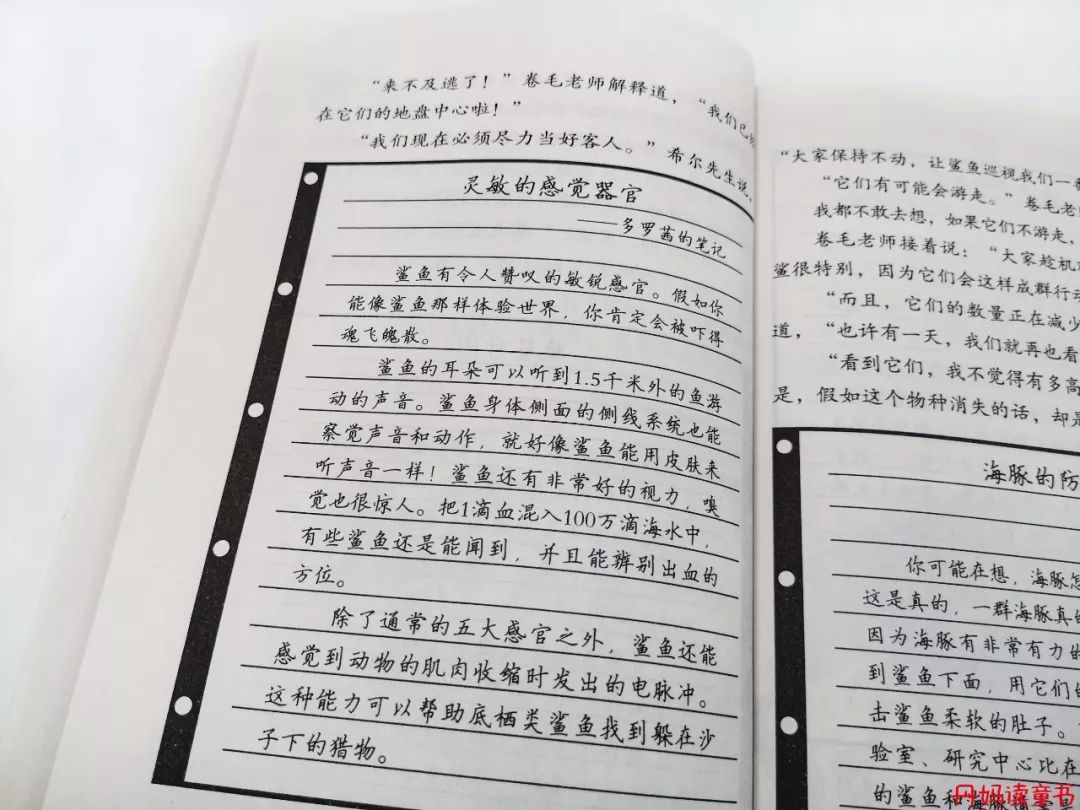 “来不及逃了！”卷毛老师解释道，“我们已
在它们的地盘中心啦！”
“我们现在必须尽力当好客人。”希尔先生说，
灵敏的感觉器官
——多罗茜的笔记
鲨鱼有令人赞叹的敏锐感官。假如你
能像鲨鱼那样体验世界，你肯定会被吓得
魂飞魄散。
鲨鱼的耳朵可以听到1.5千米外的鱼游
动的声音。鲨鱼身体侧面的侧线系统也能
察觉声音和动作，就好像鲨鱼能用皮肤来
听声音一样！鲨鱼还有非常好的视力，嗅
觉也很惊人。把1滴血混入100万滴海水中，
有些鲨鱼还是能闻到，并且能辨别出血的
方位。
除了通常的五大感官之外，鲨鱼还能
感觉到动物的肌肉收缩时发出的电脉冲。
这种能力可以帮助底栖类鲨鱼找到躲在沙
子下的猎物。
“大家保持不动，让鲨鱼巡视我们一
“它们有可能会游走。”卷毛老
我都不敢去想，如果它们不游走，
卷毛老师接着说：“大家趁机
鲨很特别，因为它们会这样成群行动
“而且，它们的数量正在减少
道，“也许有一天，我们就再也看
“看到它们，我不觉得有多高
是，假如这个物种消失的话，却是
海豚的防
你可能在想，海豚怎
这是真的，一群海豚真的
因为海豚有非常有力的
到鲨鱼下面，用它们的
击鲨鱼柔软的肚子。
验室、研究中心比在
的鲨鱼和海豚
丹妈读童书